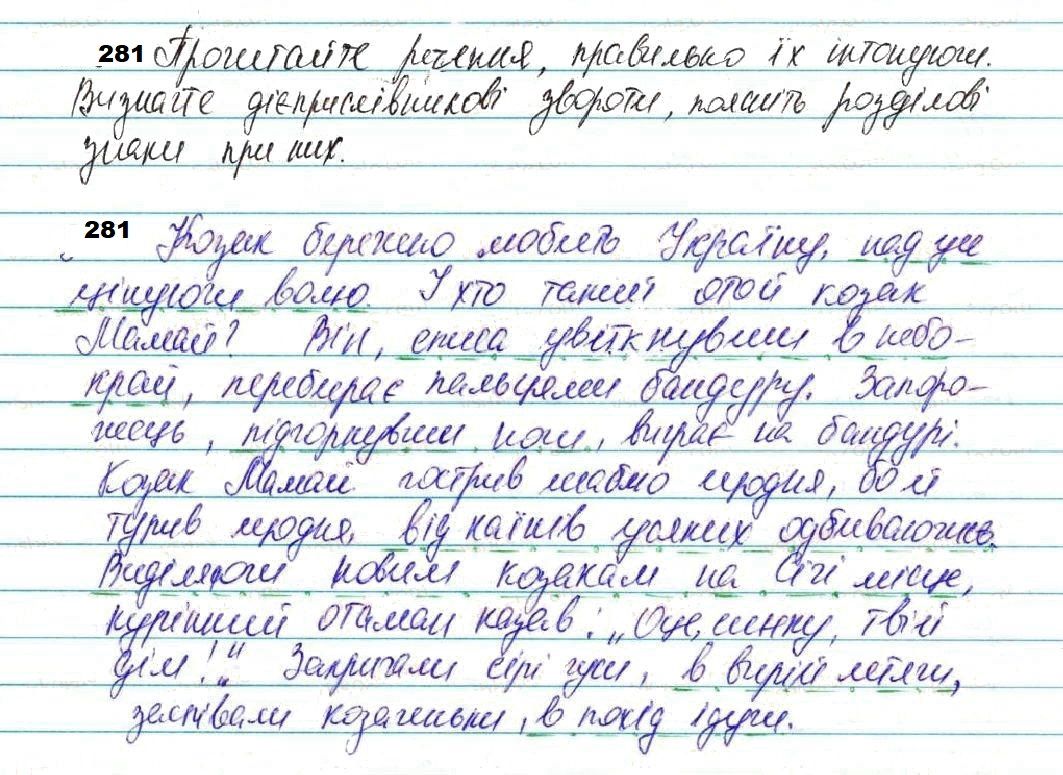 281 Прочитайте речення, правильно їх інтонуючи.
Визначте дієприслівникові звороти, поясніть розділові
знаки при них.
281 Козак бережно любить Україну, над усе
цінуючи волю. І хто такий отой козак
Мамай? Він, списа увіткнувши в небо-
край, перебирає пальцями бандуру. Запоро-
жець, підгорнувши ноги, виграє на бандурі.
Козак Мамай гострив шаблю щодня, бо й
турив щодня, від наїзників усяких одбиваючись.
Виділяючи новим козакам на Січі місце,
курінний отаман казав: „Оце, синку, твій
дім!" Закричали сірі гуси, в вирій летячи,
заспівали козаченьки, в похід ідучи.